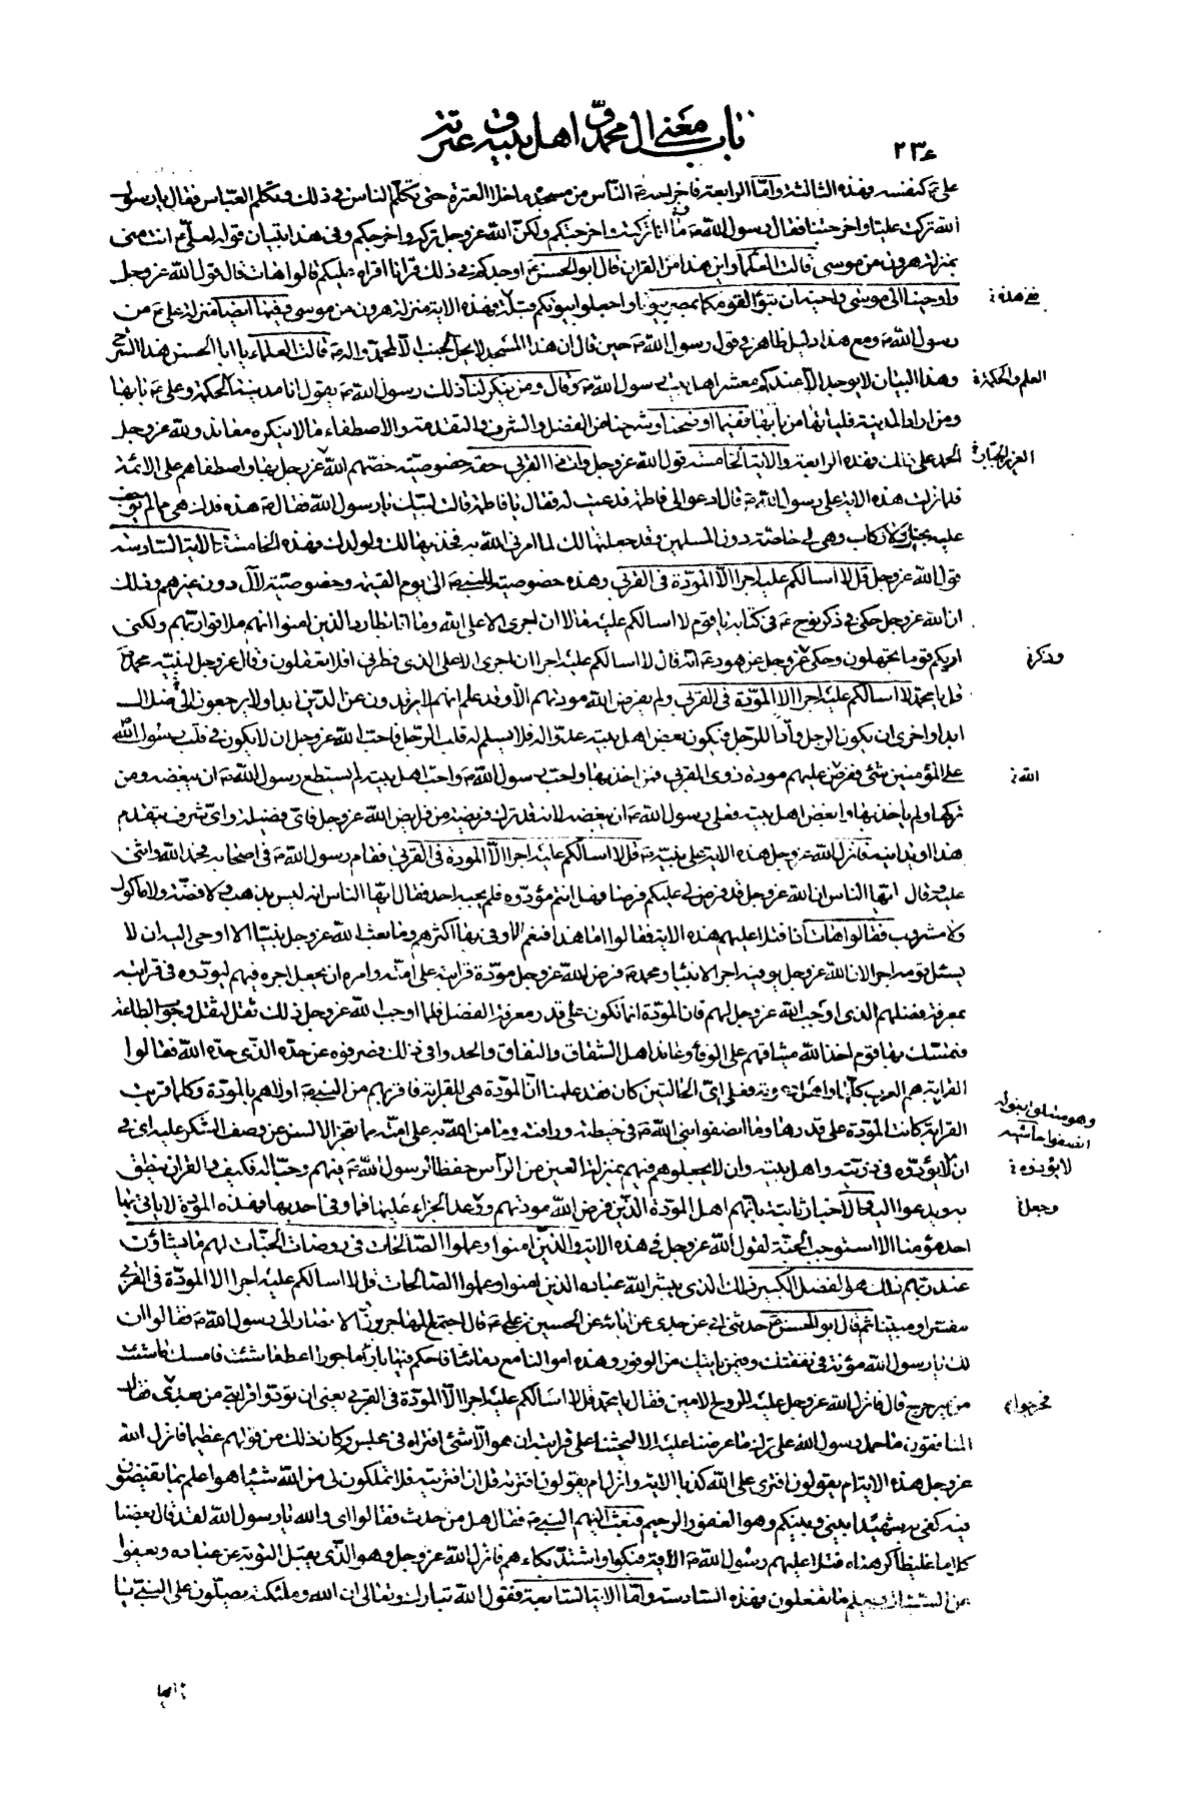 باب معنى آل محمد ص و اهل بيته ص و عترته
٢٣٤
على ع كنفسه فهذه الثالثة و اما الرابعة فاخراجه ص الناس من مسجده ما خلا العترة حتى تكلم الناس فى ذلك و تكلم العباس فقال يا رسول
الله تركت عليا و اخرجتنا فقال رسول الله ص ما انا تركته و اخرجتكم ولكن الله عز و جل تركه و اخرجكم و فى هذا تبيان قوله لعلى ع انت منى
بمنزلة هرون من موسى قالت العلماء و اين هذا من القران قال ابو الحسن ع اوجدكم فى ذلك قرانا اقراه عليكم قالوا هات قال قول الله عز و جل
و اوحينا الى موسى و اخيه ان تبوآ لقومكما بمصر بيوتا و اجعلوا بيوتكم قبلة فهذه الاية منزلة هرون من موسى و فيها ايضا منزلة على ع من
رسول الله ص و مع هذا دليل ظاهر فى قول رسول الله ص حين قال ان هذا المسجد لا يحل لجنب الا لمحمد و اله ص قالت العلماء يا ابا الحسن هذا الشرح
و هذا البيان لا يوجد الا عندكم معشر اهل بيت رسول الله ص فقال و من ينكر لنا ذلك رسول الله ص يقول انا مدينة الحكمة و على ع بابها
و من اراد المدينة فلياتها من بابها ففيما اوضحنا و شرحنا من الفضل و الشرف و التقدمة و الاصطفاء ما لا ينكره معاند و لله عز و جل
الحمد على ذلك فهذه الرابعة و الاية الخامسة قول الله عز و جل و ات ذا القربى حقه خصوصية خصهم الله عز و جل بها و اصطفاهم على الامة
فلما نزلت هذه الاية على رسول الله ص قال ادعوا لى فاطمة فدعيت له فقال يا فاطمة قالت لبيك يا رسول الله فقال ص هذه فدك هى مما لم يوجف
عليه بخيل و لا ركاب و هى لى خاصة دون المسلمين و قد جعلتها لك لما امرنى الله به فخذيها لك و لولدك فهذه الخامسة و الاية السادسة
قول الله عز و جل قل لا اسالكم عليه اجرا الا المودة فى القربى و هذه خصوصية للنبى ص الى يوم القيمة و خصوصية للآل دون غيرهم و ذلك
ان الله عز و جل حكى فى ذكر نوح ع فى كتابه يا قوم لا اسالكم عليه مالا ان اجرى الا على الله و ما انا بطارد الذين امنوا انهم ملاقوا ربهم و لكنى
اريكم قوما تجهلون و حكى عز و جل عن هود ع انه قال لا اسالكم عليه اجرا ان اجرى الا على الذى فطرنى افلا تعقلون و قال عز و جل لنبيه محمد ص
قل يا محمد لا اسالكم عليه اجرا الا المودة فى القربى و لم يفرض الله مودتهم الا و قد علم انهم لا يرتدون عن الدين ابدا و لا يرجعون الى ضلال
ابدا و اخرى ان يكون الرجل وادا للرجل فيكون بعض اهل بيته عدوا له فلا يسلم له قلب الرجل فاحب الله عز و جل ان لا يكون فى قلب رسول الله
على المؤمنين شئ ففرض عليهم مودة ذوى القربى فمن اخذ بها و احب رسول الله ص و احب اهل بيته لم يستطع رسول الله ص ان يبغضه و من
تركها و لم ياخذ بها و ابغض اهل بيته فعلى رسول الله ص ان يبغضه لانه قد ترك فريضة من فرايض الله عز و جل فاى فضيلة و اى شرف يتقدم
هذا او يدانيه فانزل الله عز و جل هذه الاية على نبيه ص قل لا اسالكم عليه اجرا الا المودة فى القربى فقام رسول الله ص فى اصحابه فحمد الله و اثنى
عليه و قال ايها الناس ان الله عز و جل قد فرض لى عليكم فرضا فهل انتم مؤدوه فلم يجبه احد فقال ايها الناس انه ليس بذهب و لا فضة و لا ماكول
و لا مشروب فقالوا هات اذا فتلا عليهم هذه الاية فقالوا اما هذا فنعم فما وفى بها اكثرهم و ما بعث الله عز و جل نبيا الا اوحى اليه ان لا
يسئل قومه اجرا لان الله عز و جل يوفيه اجر الانبياء و محمد ص فرض الله عز و جل مودة قرابته على امته و امره ان يجعل اجره فيهم ليودوه فى قرابته
بمعرفة فضلهم الذى اوجب الله عز و جل لهم فان المودة انما تكون على قدر معرفة الفضل فلما اوجب الله عز و جل ذلك ثقل لثقل وجوب الطاعة
فتمسك بها قوم اخذ الله ميثاقهم على الوفاء و عاند اهل الشقاق و النفاق و الحدوا فى ذلك فصرفوه عن حده الذى حده الله فقالوا
القرابة هم العرب كلها و اهل دعوته فعلى اى الحالتين كان فقد علمنا ان المودة هى للقرابة فاقربهم من النبى ص اولاهم بالمودة و كلما قربت
القرابة كانت المودة على قدرها و ما انصفوا نبى الله ص فى حيطته و رافته و ما من الله به على امته مما تعجز الالسن عن وصف الشكر عليه ان
ان لا يؤدوه فى ذريته و اهل بيته و ان لا يجعلوهم فيهم بمنزلة العين من الراس حفظا لرسول الله ص فيهم و حبا له فكيف و القران ينطق
به و يدعوا اليه و الاخبار ثابتة بانهم اهل المودة الذين فرض الله مودتهم و وعد الجزاء عليها فما وفى احد بها فهذه المودة لا ياتى بها
احد مؤمنا الا استوجب الجنة لقول الله عز و جل فى هذه الاية و الذين امنوا و عملوا الصالحات فى روضات الجنات لهم ما يشاؤن
عند ربهم ذلك هو الفضل الكبير ذلك الذى يبشر الله عباده الذين امنوا و عملوا الصالحات قل لا اسالكم عليه اجرا الا المودة فى القربى
مفسرا و مبينا ثم قال ابو الحسن ع حدثنى ابى عن جدى عن ابائه عن الحسين بن على ع قال اجتمع المهاجرون و الانصار الى رسول الله ص فقالوا ان
لك يا رسول الله مؤنة فى نفقتك و فيمن ياتيك من الوفود و هذه اموالنا مع دمائنا فاحكم فيها بارا ماجورا اعط ما شئت و امسك ما شئت
من غير حرج قال فانزل الله عز و جل عليه الروح الامين فقال يا محمد قل لا اسالكم عليه اجرا الا المودة فى القربى يعنى ان تودوا قرابتى من بعدى فقال
المنافقون ما حمل رسول الله على ترك ما عرضنا عليه الا ليحثنا على قرابته ان هو الا شئ افتراه فى مجلسه و كان ذلك من قولهم عظيما فانزل الله
عز و جل هذه الاية ام يقولون افترى على الله كذبا الاية و انزل ام يقولون افتريه قل ان افتريته فلا تملكون لى من الله شيئا هو اعلم بما تفيضون
فيه كفى به شهيدا بينى و بينكم و هو الغفور الرحيم فبعث اليهم النبى ص فقال هل من حدث فقالوا اى و الله يا رسول الله لقد قال بعضنا
كلاما غليظا كرهناه فتلا عليهم رسول الله ص الاية فبكوا و اشتد بكاءهم فانزل الله عز و جل و هو الذى يقبل التوبة عن عباده و يعفوا
عن السيئات و يعلم ما تفعلون فهذه السادسة و اما الاية السابعة فقول الله تبارك و تعالى ان الله و ملئكته يصلون على النبى يا
ففى هذه
العلم و الحكمة
العزيز الجبار
و ذكر
الله
لا يؤذوه
و جعل
فخرجوا
ايها